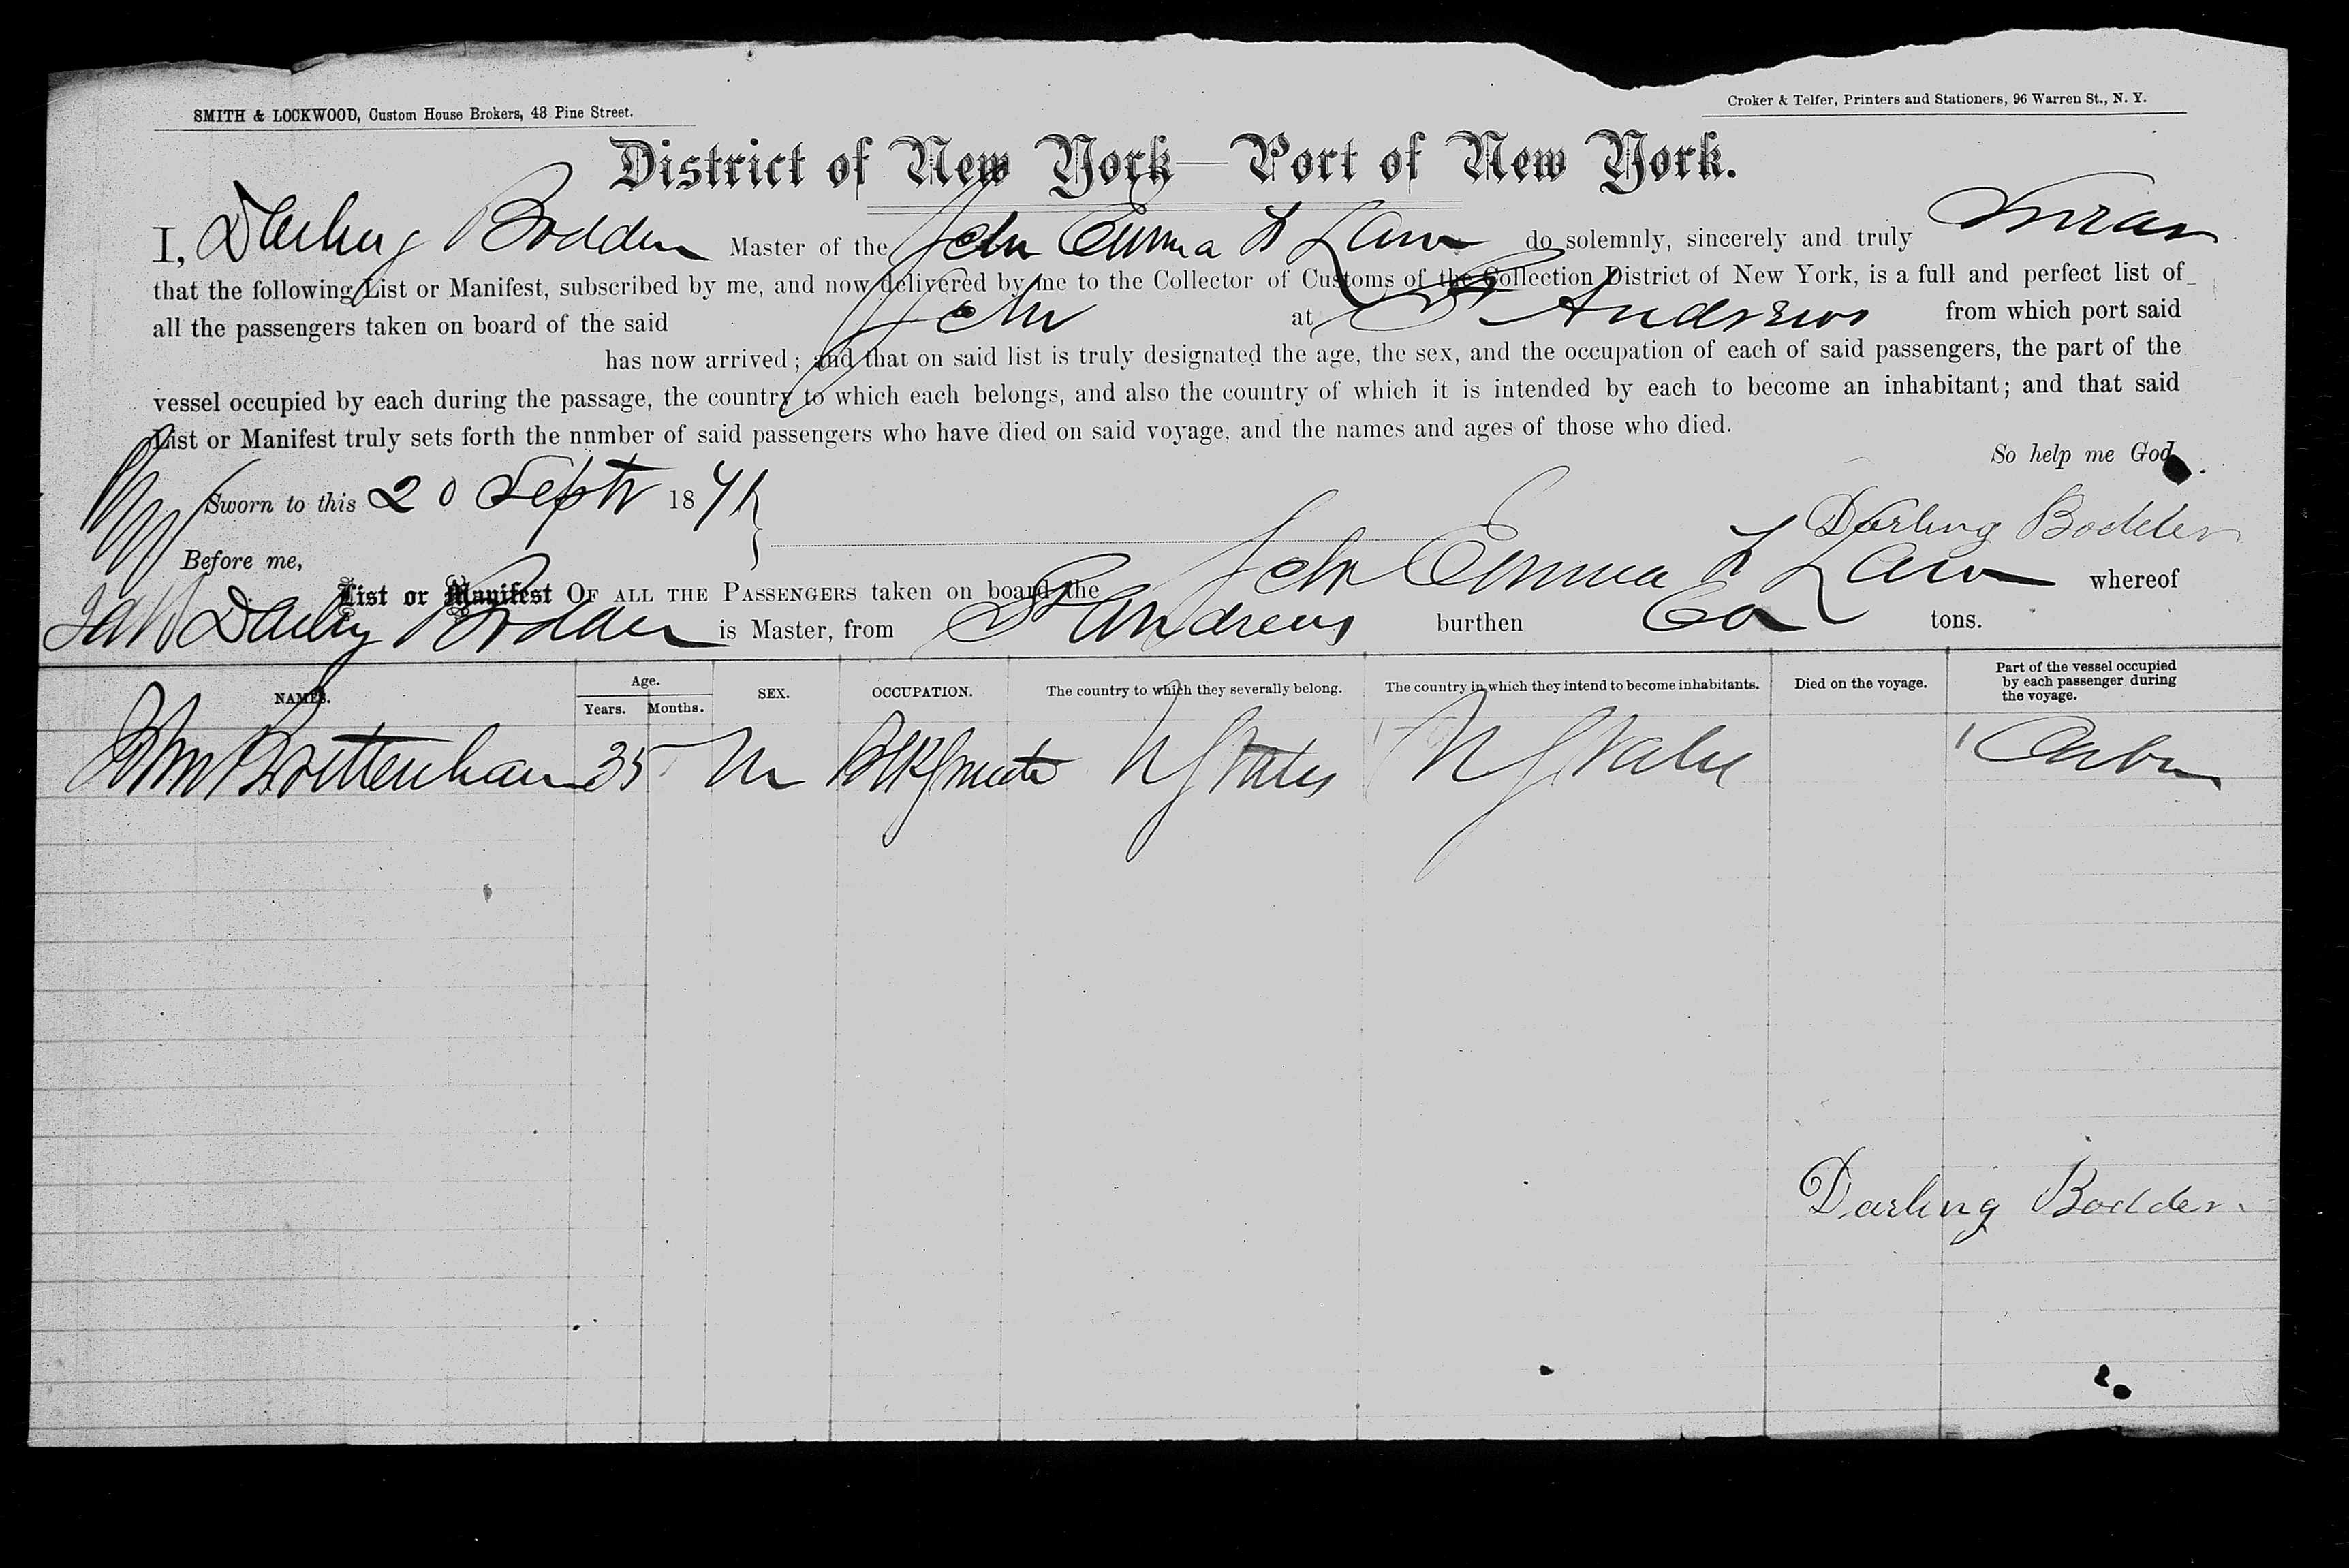 SMITH & LOCKWOOD, Custom House Brokers, 48 Pine Street.
Croker & Telfer, Printers and Stationers, 96 Warren St., N. Y.
District of New York—Port of New York.
I, Darling Bodden Master of the Schr Emma L Law do solemnly, sincerely and truly Swear
that the following List or Manifest, subscribed by me, and now delivered by me to the Collector of Customs of the Collection District of New York, is a full and perfect list of
all the passengers taken on board of the said Schr at St Andrews from which port said
has now arrived; and that on said list is truly designated the age, the sex, and the occupation of each of said passengers, the part of the
vessel occupied by each during the passage, the country to which each belongs, and also the country of which it is intended by each to become an inhabitant; and that said
List or Manifest truly sets forth the nnmber of said passengers who have died on said voyage, and the names and ages of those who died.
So help me God.
Sworn to this 20 Septr 18
Darling Bodden
Before me,
List or Manifest OF ALL THE PASSENGERS taken on board the Schr Emma L Law whereof
Darling Bodden is Master, from St Andrews burthen tons.
NAMES. Age. Years. Months. SEX. OCCUPATION. The country to which they severally belong. The country in which they intend to become inhabitants. Died on the voyage. Part of the vessel occupied by each passenger during the voyage.
John Brittenham 35 M Blksmith U States U States Cabin
Darling Bodden